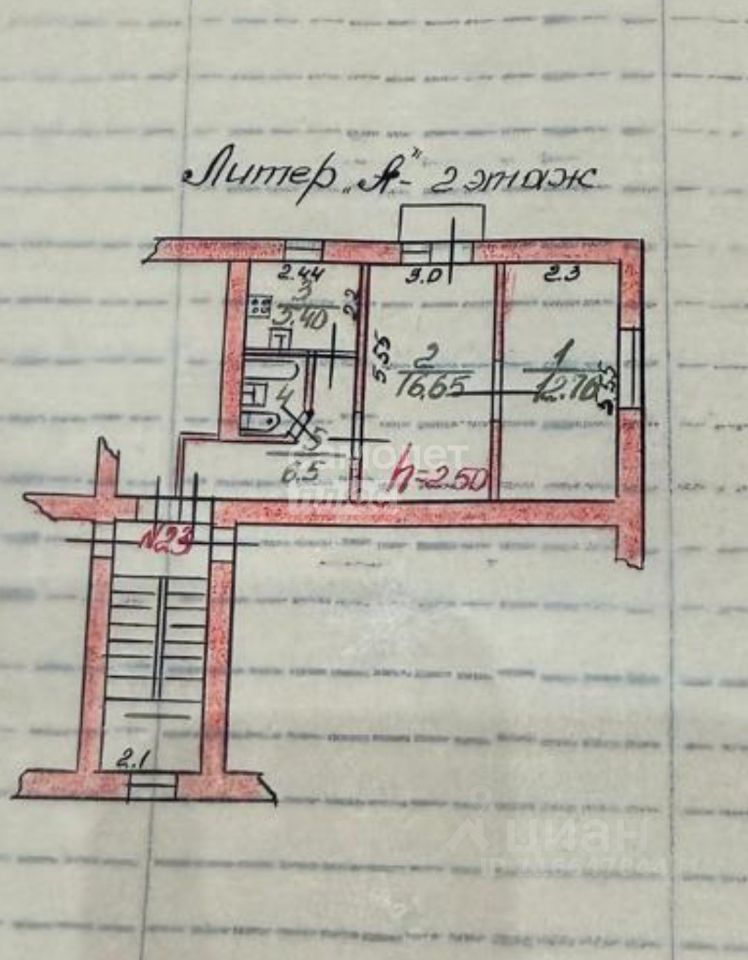 Литер „А“- 2 этаж
2.44
3.0
2.3
3
5.40
2.2
5.55
2
16.65
1
12.76
5.55
4
5
6.5
самолет
плюс
h=2.50
N23
2.1
циан